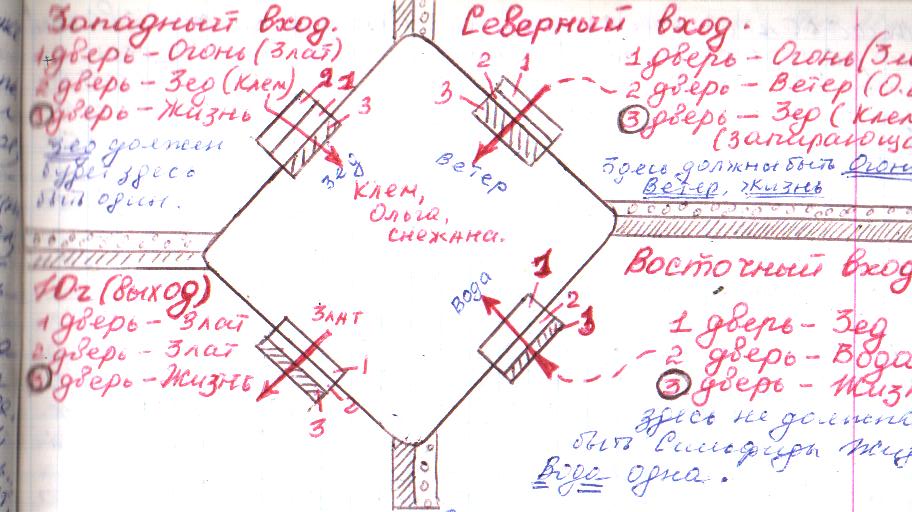 Западный вход.
1 дверь – Огонь (Злат)
2 дверь – Зед (Клем)
3 дверь – Жизнь
Зед должен
будет здесь
быть один.
Северный вход.
1 дверь – Огонь (Зл
2 дверь – Ветер (О.
3 дверь – Зед (Клем
(Запирающа
Здесь должны быть Огонь
Ветер, Жизнь
2 1
3
Зед
2 1
3
Ветер
Клем,
Ольга,
Снежана.
Юг (выход)
1 дверь – Злат
2 дверь – Злат
3 дверь – Жизнь
Злат
1
2
3
Вода
1
2
3
Восточный вход
1 дверь – Зед
2 дверь – Вода
3 дверь – Жизн
Здесь не должно
быть Сильфиды Жиз
Вода одна.